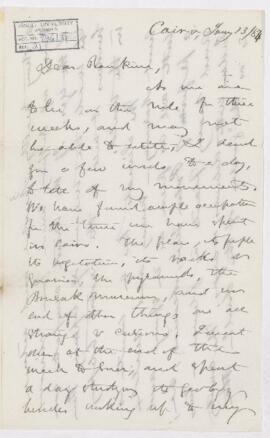 Cairo, Jany 13/84
Dear Rankine,
As we are
to be on the Nile for three
weeks, and may not
be able to write, I send
for a few words, to day,
to tell of my movements.
We have found ample occupation
for the time we have spent
in Cairo. The place, its people
its vegetation, its rocks
the pyramids, the
Boulak museum, and no
end of other things are all
strange & curious. I went
at the end of this
week to Suez, and spent
a day studying its geology
besides